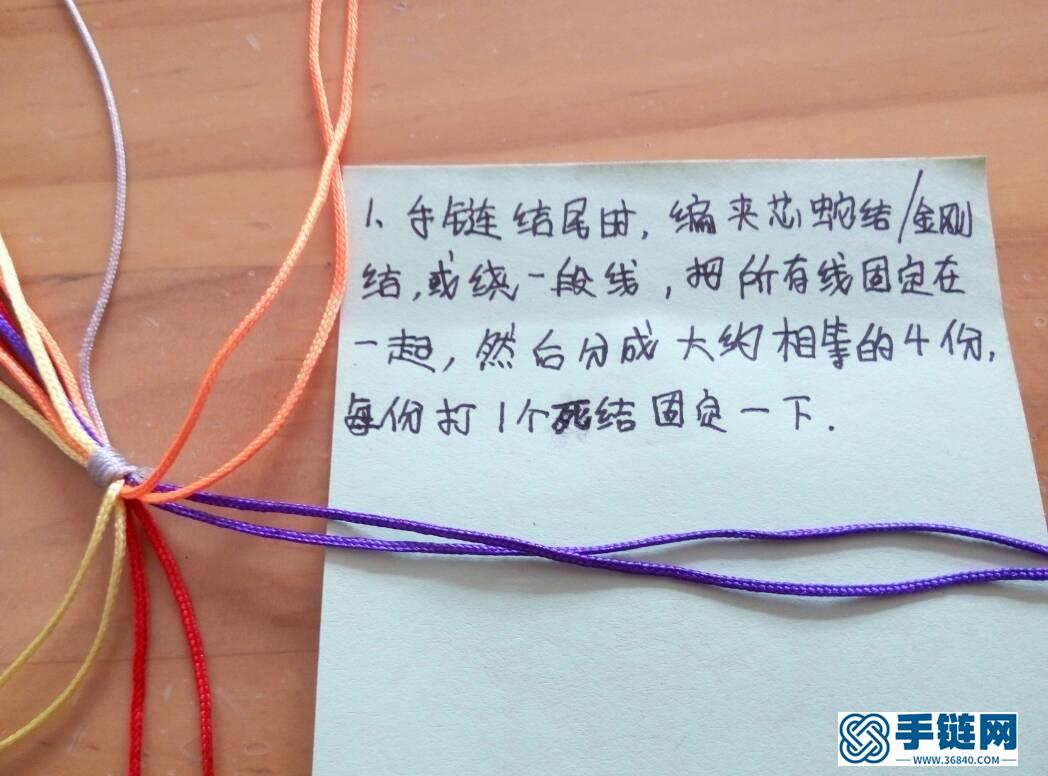 1、手链结尾时，编夹芯蛇结/金刚
结，或绕一段线，把所有线固定在
一起，然后分成大约相等的4份，
每份打1个死结固定一下.
手链网
WWW.36840.COM